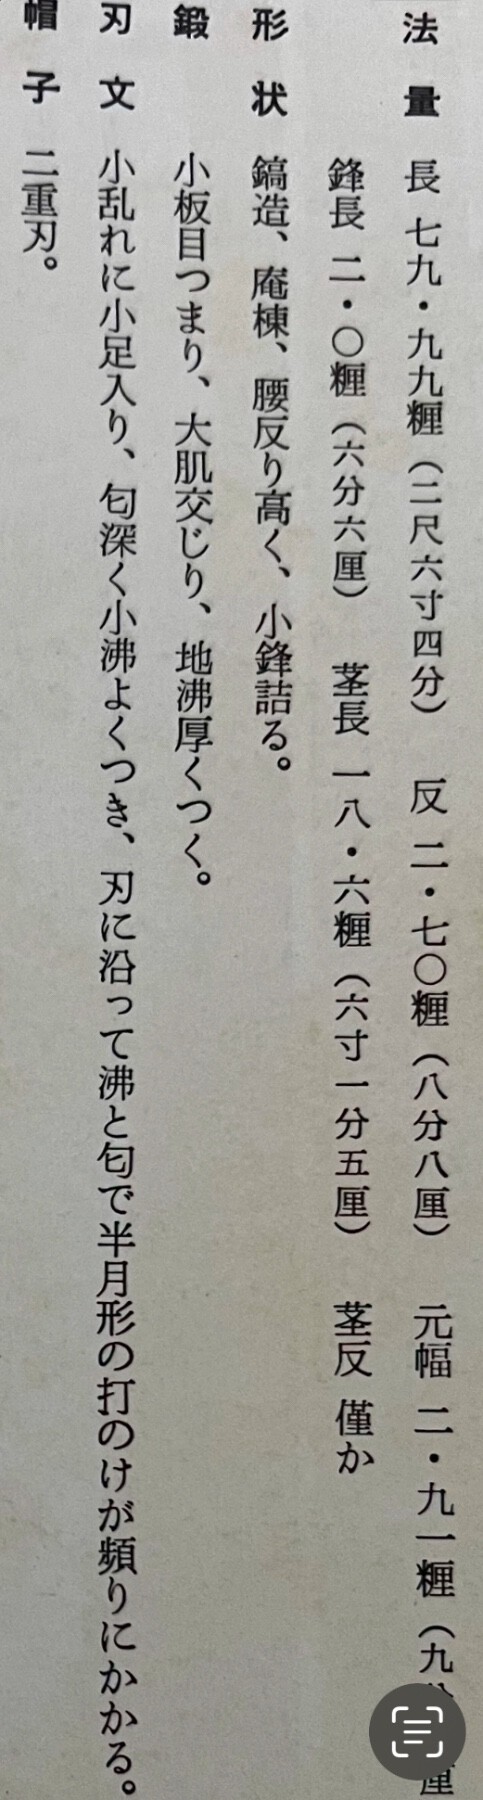 法量 長 七九・九九糎(二尺六寸四分) 反 二・七〇糎(八分八厘) 元幅 二・九一糎(九分 厘
鋒長 二・〇糎(六分六厘) 茎長 一八・六糎(六寸一分五厘) 茎反 僅か
形状 鎬造、庵棟、腰反り高く、小鋒詰る。
鍛 小板目つまり、大肌交じり、地沸厚くつく。
刃文 小乱れに小足入り、匂深く小沸よくつき、刃に沿って沸と匂で半月形の打のけが頻りにかかる。
帽子 二重刃。